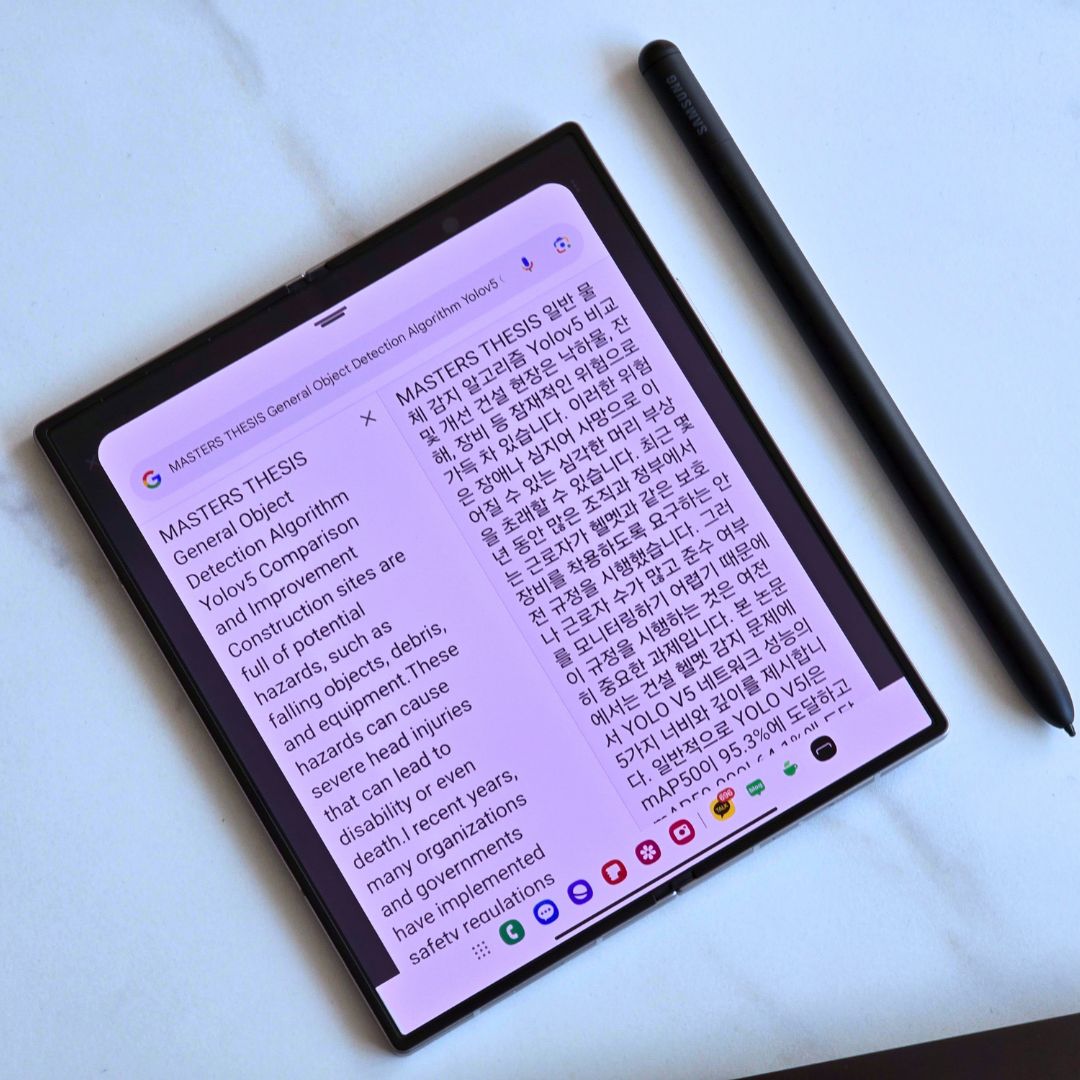 MASTERS THESIS General Object Detection Algorithm Yolov5
MASTERS THESIS
General Object
Detection Algorithm
Yolov5 Comparison
and Improvement
Construction sites are
full of potential
hazards, such as
falling objects, debris,
and equipment.These
hazards can cause
severe head injuries
that can lead to
disability or even
death.I recent years,
many organizations
and governments
have implemented
safety regulations
MASTERS THESIS 일반 물
체 감지 알고리즘 Yolov5 비교
및 개선 건설 현장은 낙하물, 잔
해, 장비 등 잠재적인 위험으로
가득 차 있습니다. 이러한 위험
은 장애나 심지어 사망으로 이
어질 수 있는 심각한 머리 부상
을 초래할 수 있습니다. 최근 몇
년 동안 많은 조직과 정부에서
는 근로자가 헬멧과 같은 보호
장비를 착용하도록 요구하는 안
전 규정을 시행했습니다. 그러
나 근로자 수가 많고 준수 여부
를 모니터링하기 어렵기 때문에
이 규정을 시행하는 것은 여전
히 중요한 과제입니다. 본 논문
에서는 건설 헬멧 감지 문제에
서 YOLO V5 네트워크 성능의
5가지 너비와 깊이를 제시합니
다. 일반적으로 YOLO V5l은
mAP50이 95.3%에 도달하고
TALK
696
blog
SAMSUNG